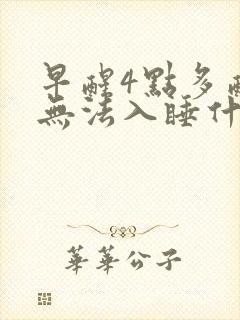 早醒4點多
無法入睡什
華華公子